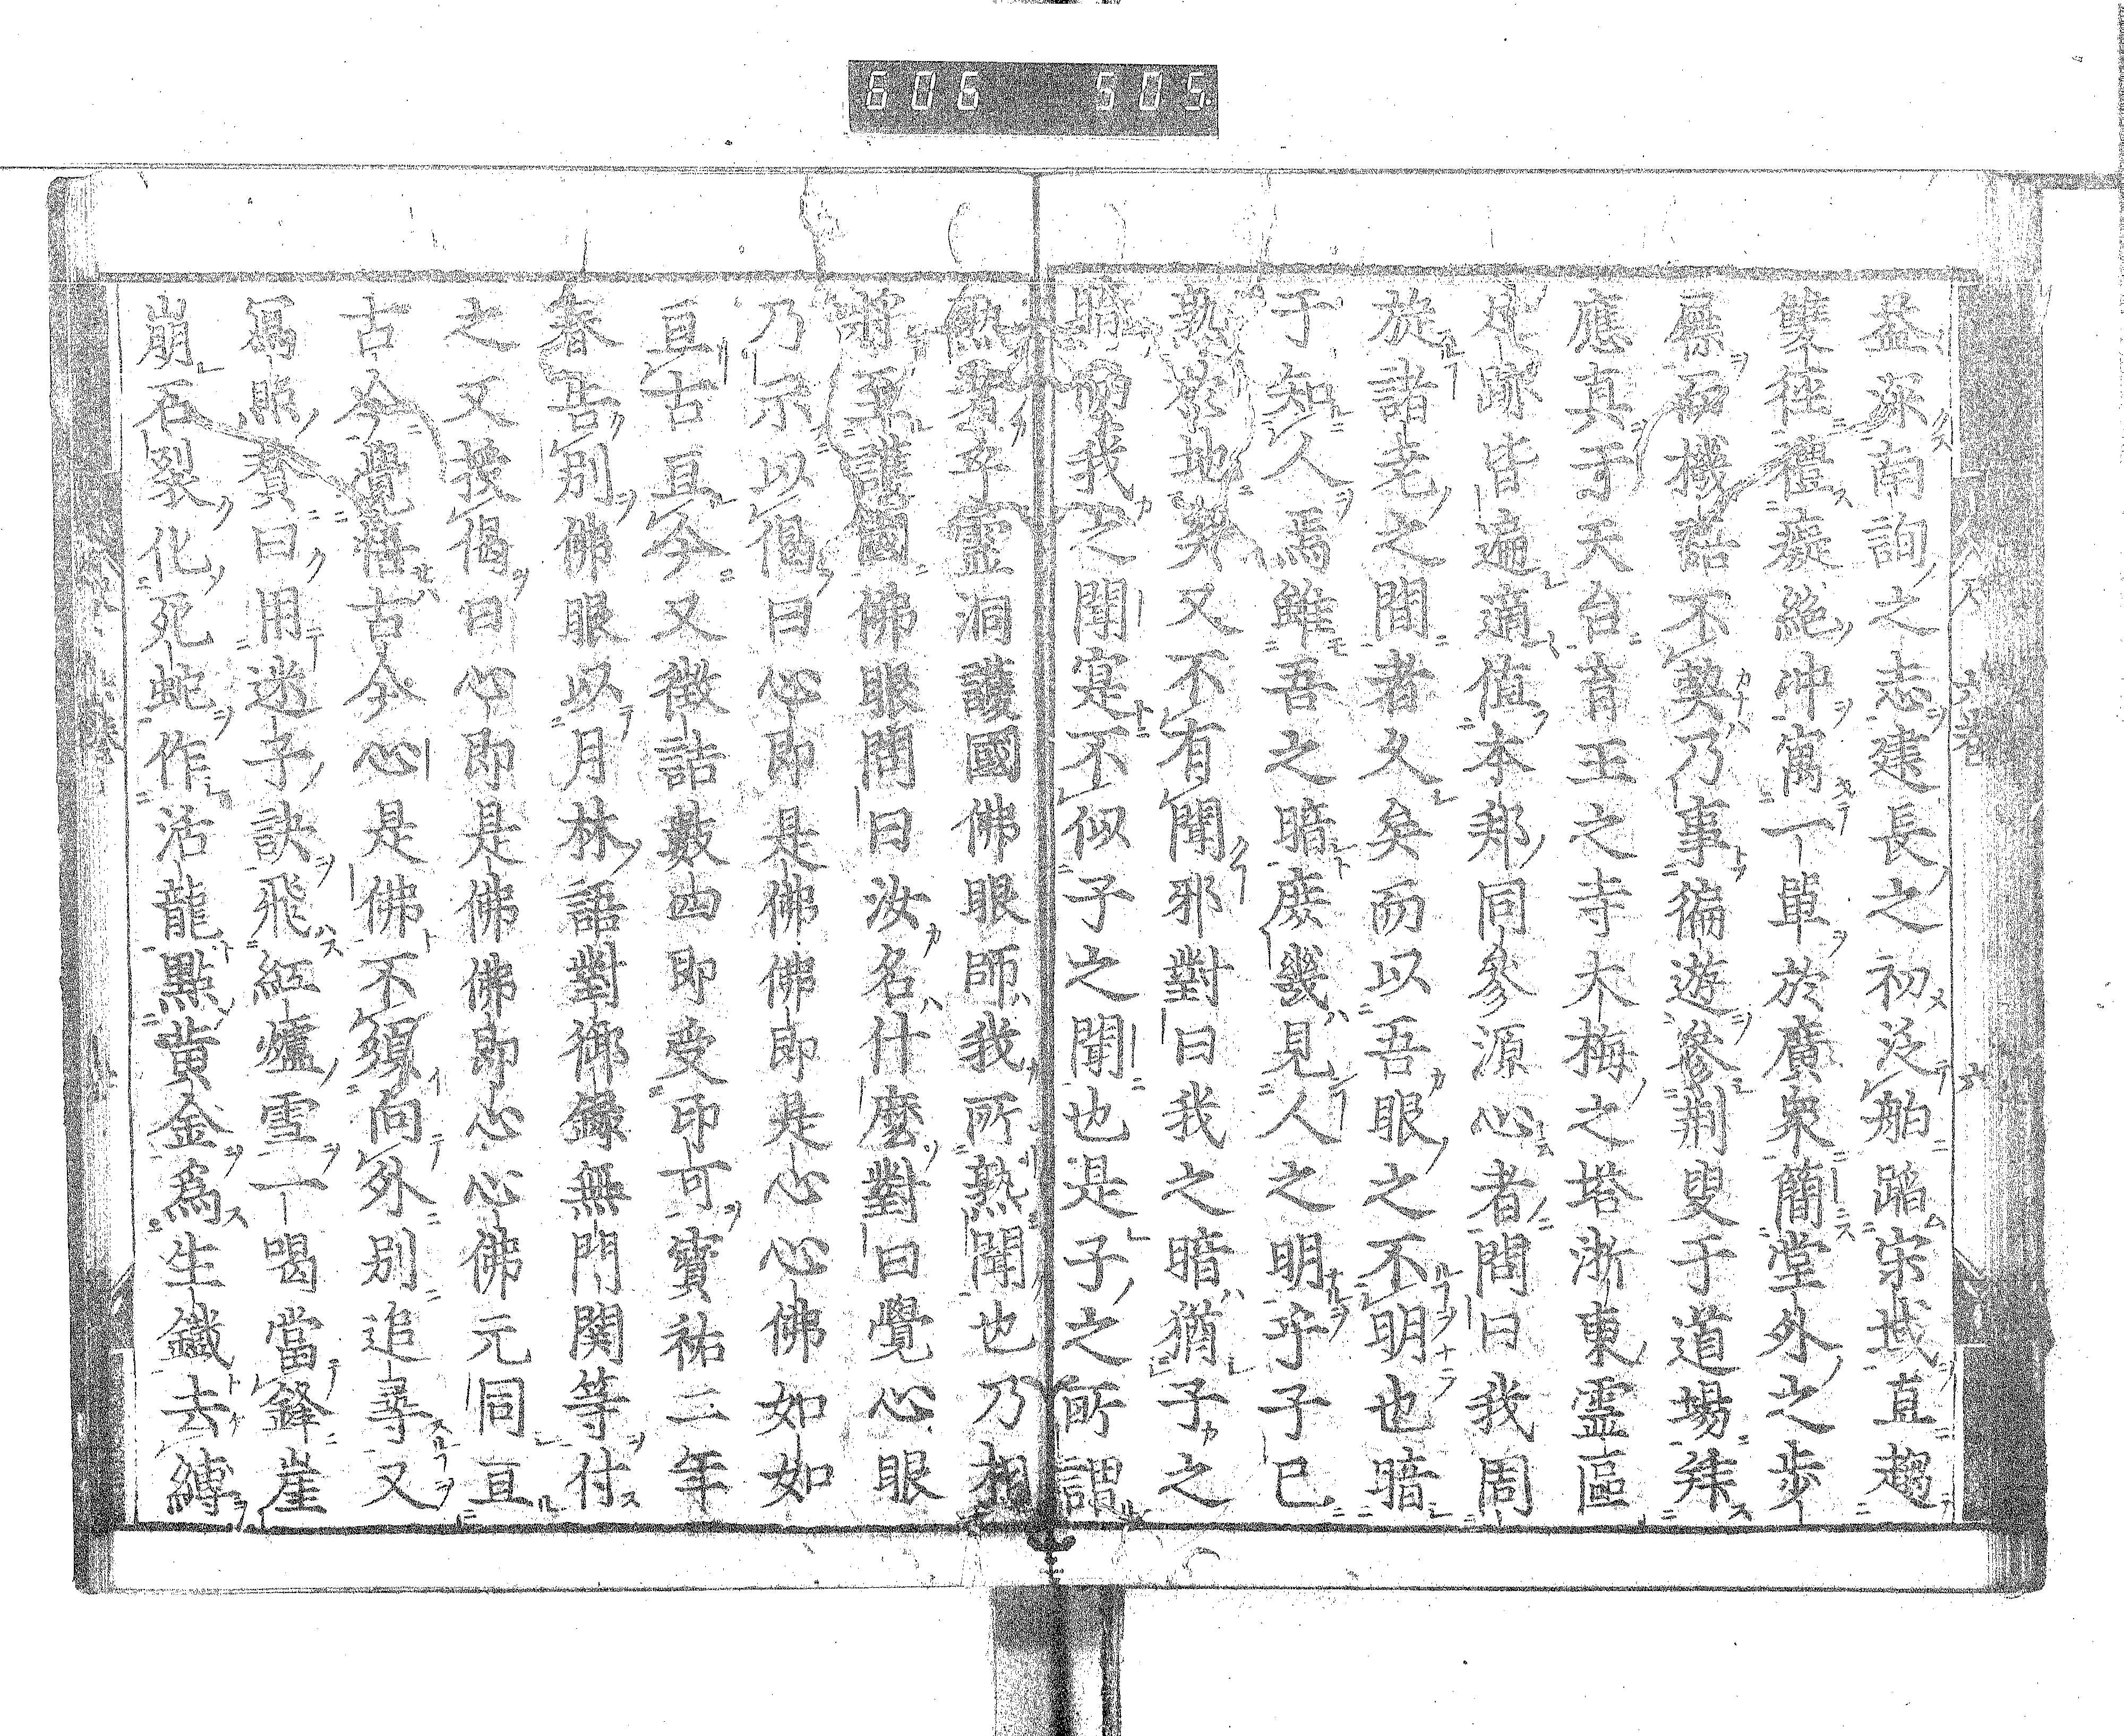 606 505
益深南詢之志建長之初泛舶蹈宋域直趨
雙徑禮癡絶冲寓一單於廣衆簡堂外之步
屧而機語不契乃事徧遊參荆叟于道場拜
應真于天台育王之寺大梅之塔浙東靈區
跡皆遍適値本邦同參源心者問曰我周
旋諸老之間者久矣而以吾眼之不明也暗
于知人焉雖吾之暗庶幾見人之明乎子已
熟於地矣又不有聞邪對曰我之暗猶子之
暗而我之聞寔不似子之聞也是子之所謂
熟者乎靈洞護國佛眼師我所熟聞也乃相
將至護國佛眼問曰汝名什麼對曰覺心眼
乃示以偈曰心即是佛佛即是心心佛如如
亘古亘今又徴詰數四即受印可寶祐二年
春告別佛眼以月林語對御録無門関等付
之又授偈曰心即是佛佛即心心佛元同亘
古今覺悟古今心是佛不須向外別追尋又
爲照賛曰用迷子訣飛紅爐雪一喝當鋒崖
崩石裂化死蛇作活龍點黄金爲生鐵去縛